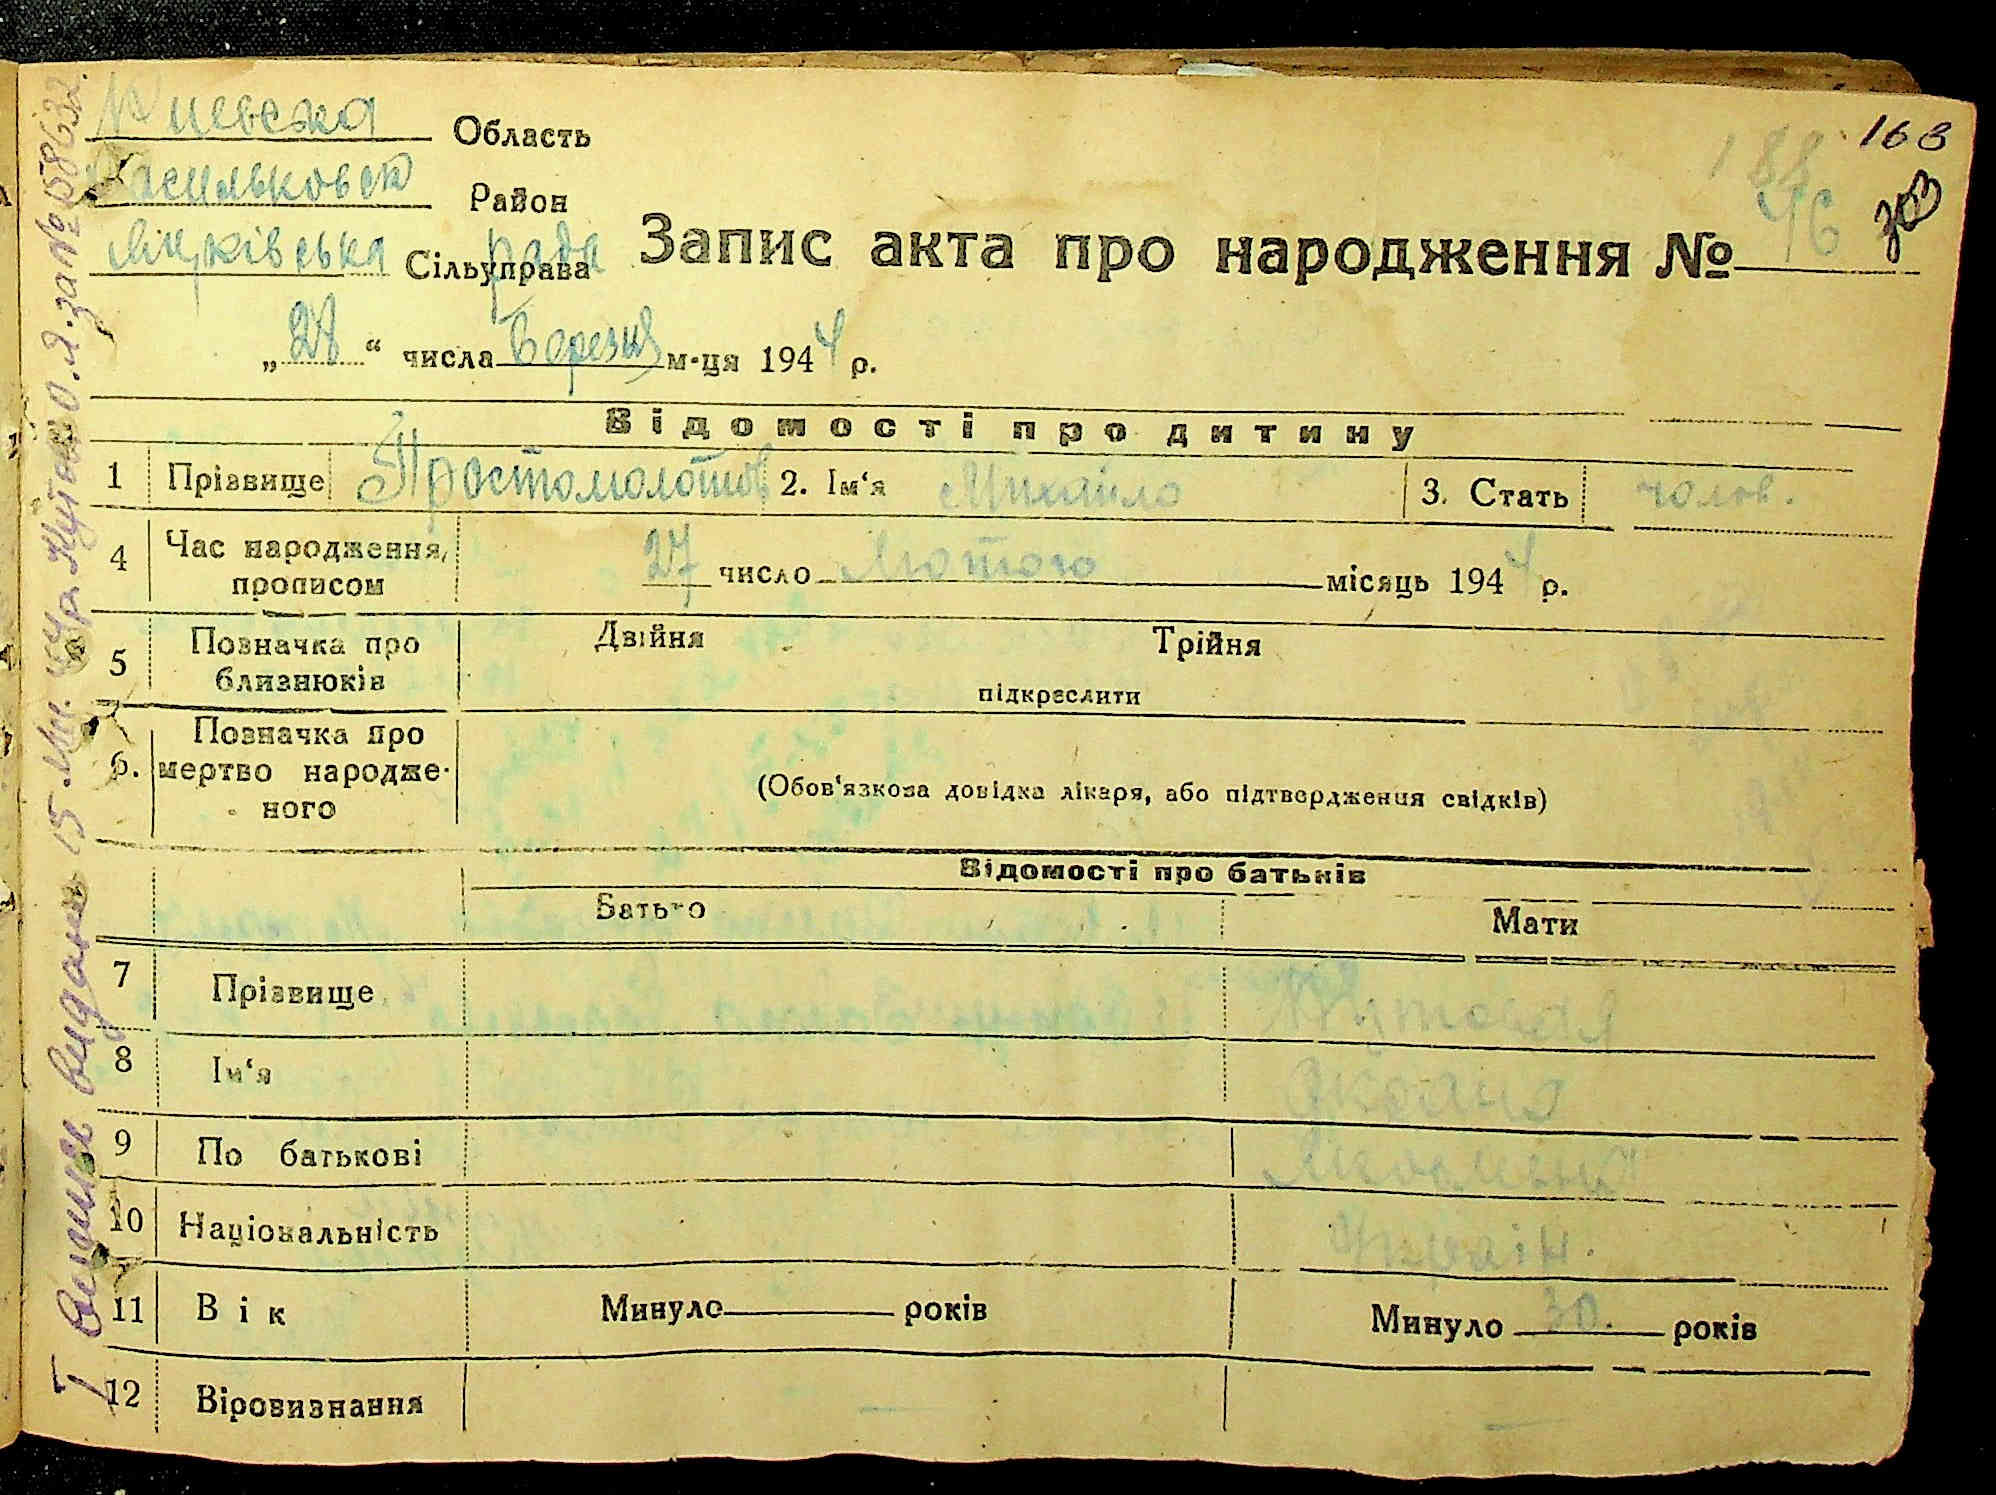 Киевска Область
168
188
Васильковск Район
46
303
Яцківська Сільуправа рада
Запис акта про народження №
„27“ числа Березня м-ця 1944 р.
Відомості про дитину
1 Прізвище Простомолотов 2. Ім‘я Михайло 3. Стать чолов.
4 Час народження, прописом 27 число Лютого місяць 1944 р.
5 Позначка про близнюків Двійня Трійня
підкреслити
6. Позначка про мертво народженого
(Обов‘язкова довідка лікаря, або підтвердження свідків)
Відомості про батьків
Батько Мати
7 Прізвище
8 Ім‘я
9 По батькові
10 Національність Україн.
11 Вік Минуло років Минуло 30. років
12 Віровизнання — —
видано 15. за № 158632.